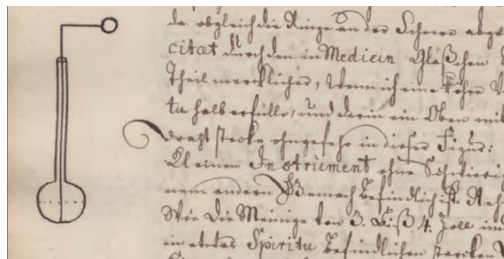 da obgleich die Ringe an der Scheere abge
citat durch den in Medicin Gläßchen
Theil mercklicher, wenn ich eine
ta halb erfülle, und darin ein Oben mit
draht stecke ohngefehr in dieser Figur:
einen Instrument ohne
nem andern Gemach befindlich ist.
Wie die Meinige von 3. biß 4. Zoll im
ein etwas Spiritu befindlichen starcken